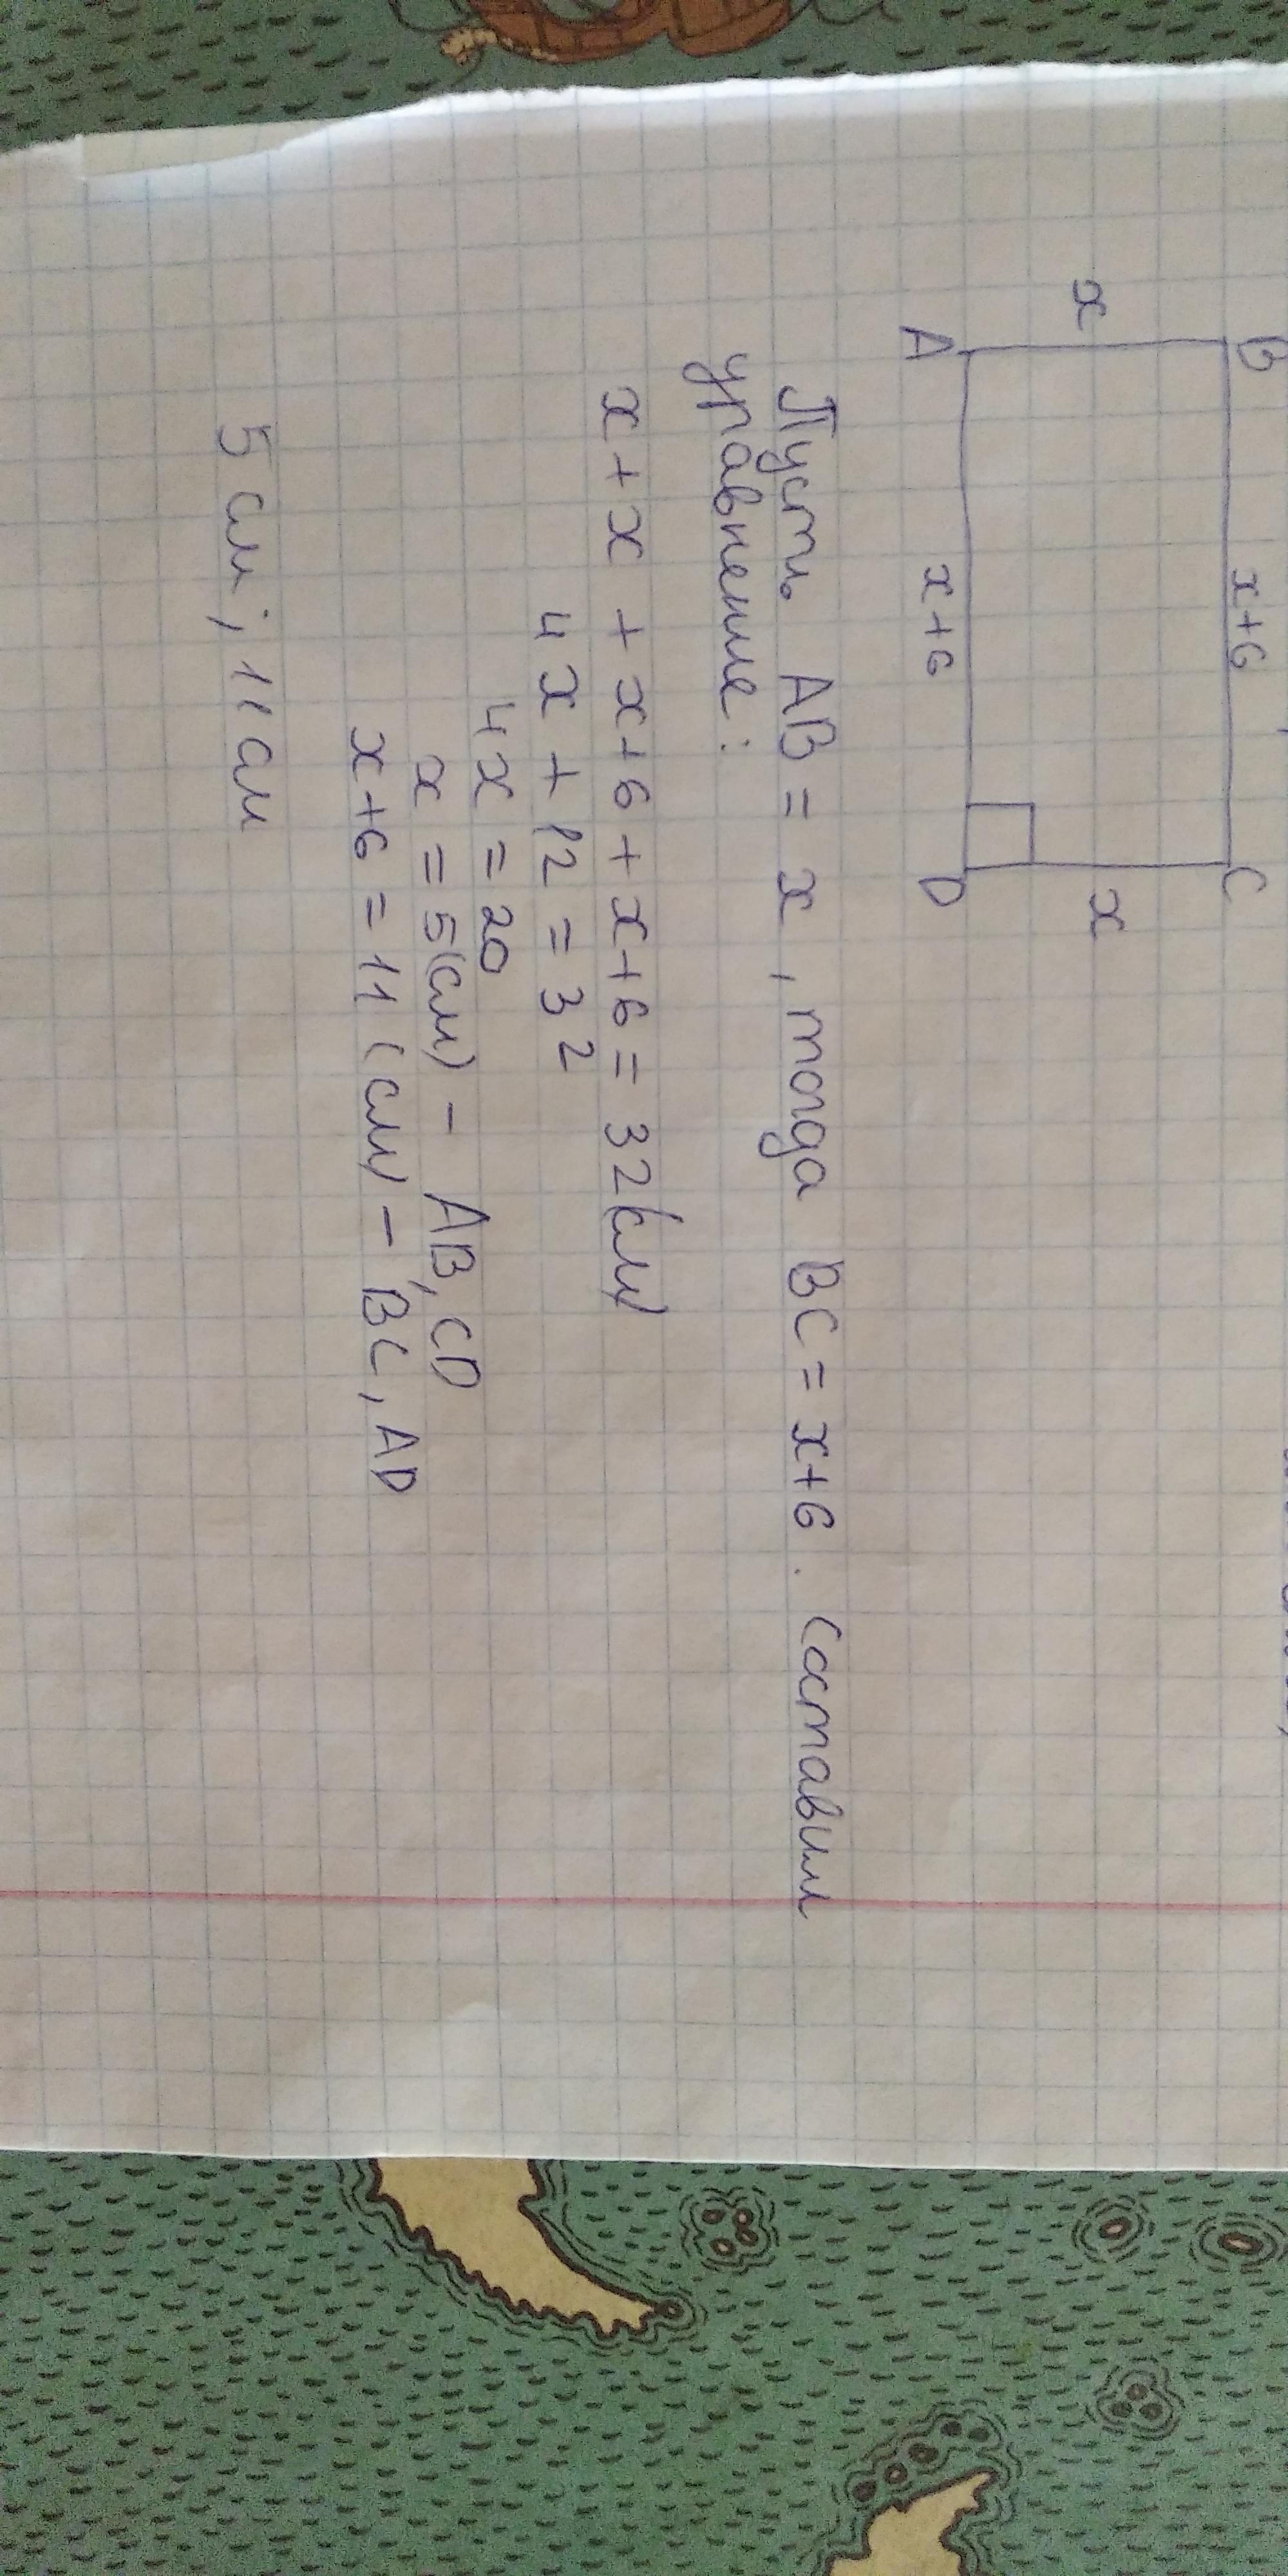 B x+6 C
x x
A x+6 D
Пусть AB = x, тогда BC = x+6. Составим
уравнение:
x+x + x+6 + x+6 = 32(см)
4x + 12 = 32
4x = 20
x = 5(см) – AB, CD
x+6 = 11 (см) – BC, AD
5 см; 11 см